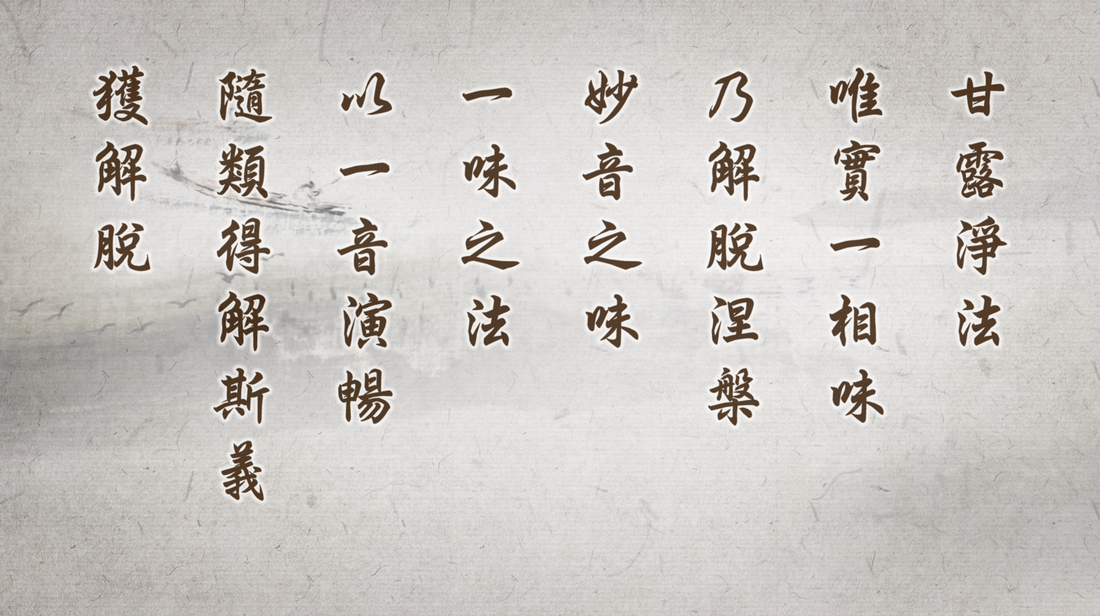 甘露淨法
唯實一相味
乃解脫涅槃
妙音之味
一味之法
以一音演暢
隨類得解斯義
獲解脫